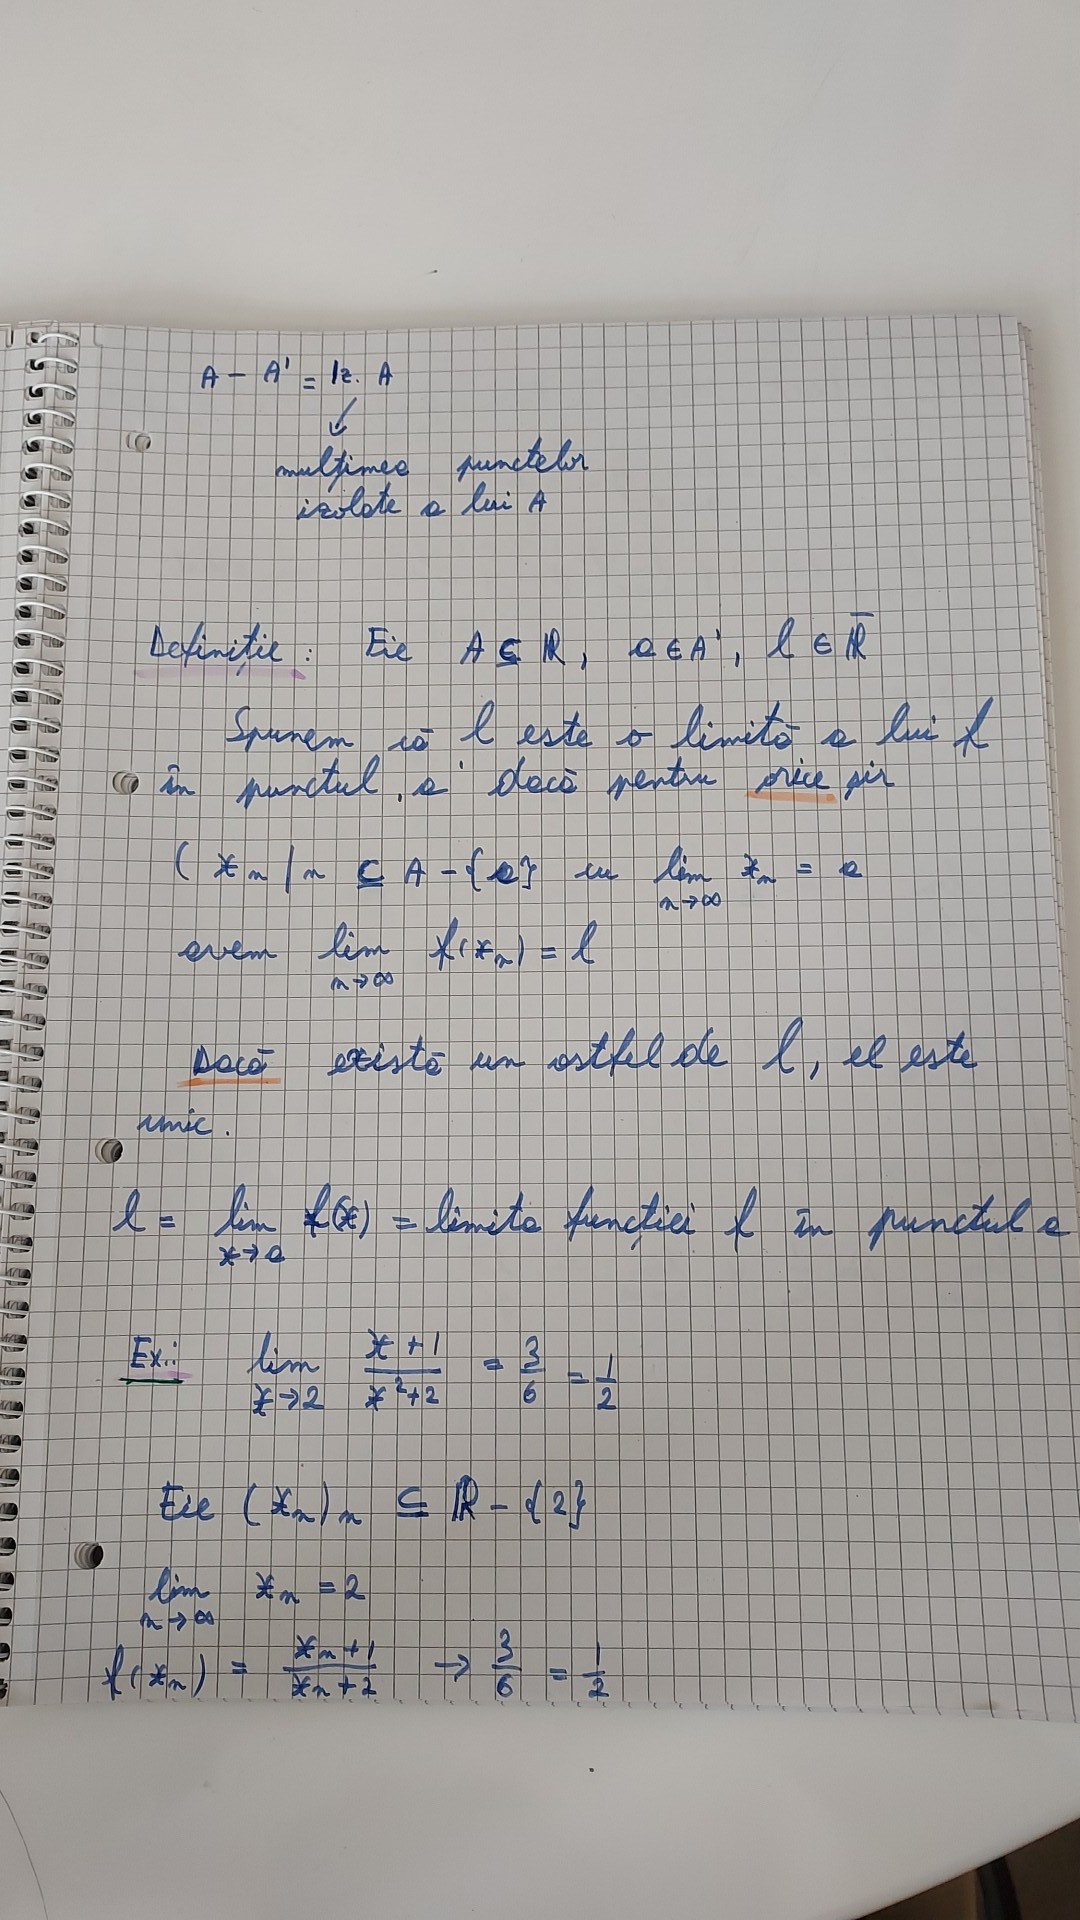 A - A' = Iz. A
↓
mulțimea punctelor
izolate a lui A
Definiție: Fie A ⊆ ℝ, a ∈ A', l ∈ ℝ̅
Spunem că l este o limită a lui f
în punctul 'a' dacă pentru orice șir
(xₙ)ₙ ⊆ A - {a} cu lim xₙ = a
n→∞
avem lim f(xₙ) = l
n→∞
Dacă există un astfel de l, el este
unic.
l = lim f(x) = limita funcției f în punctul a
x→a
Ex.: lim x+1 / x²+2 = 3/6 = 1/2
x→2
Fie (xₙ)ₙ ⊆ ℝ - {2}
lim xₙ = 2
n→∞
f(xₙ) = xₙ+1 / xₙ+2 → 3/6 = 1/2